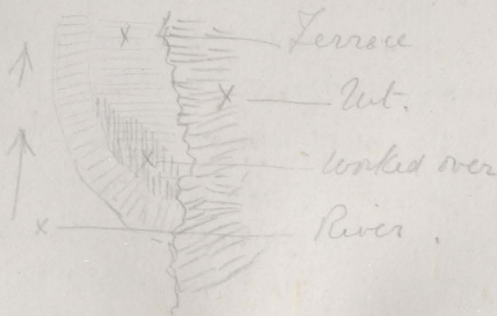 Terrace
Mt.
Worked over
River.